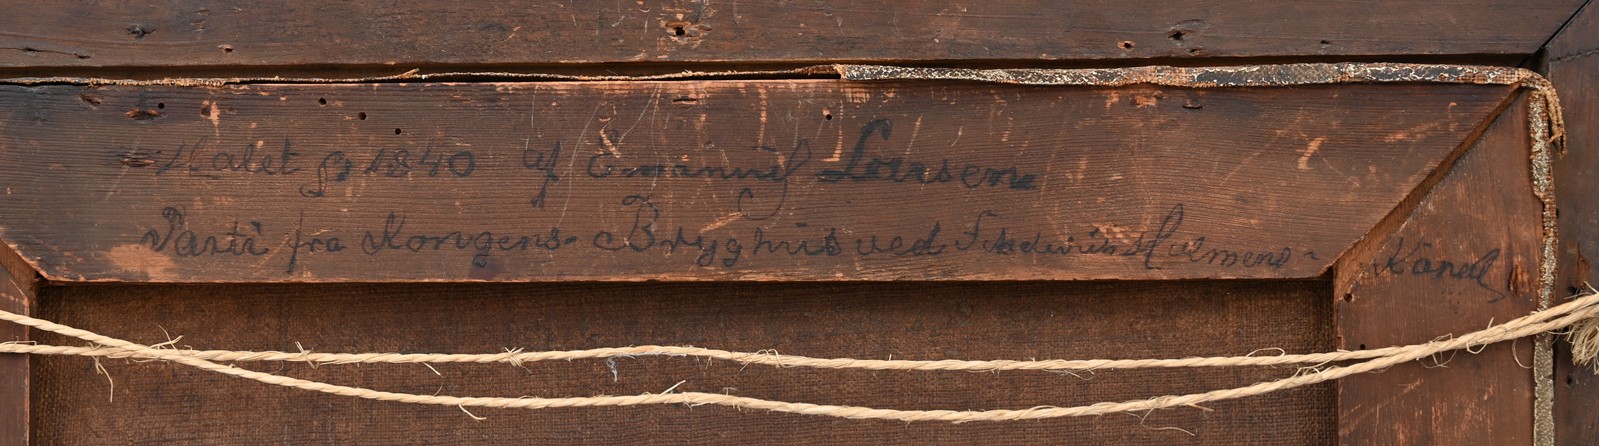 Malet 1840 af Emanuel Larsen
Parti fra Kongens- Bryghus ved Frederiks Holmens- Kanal